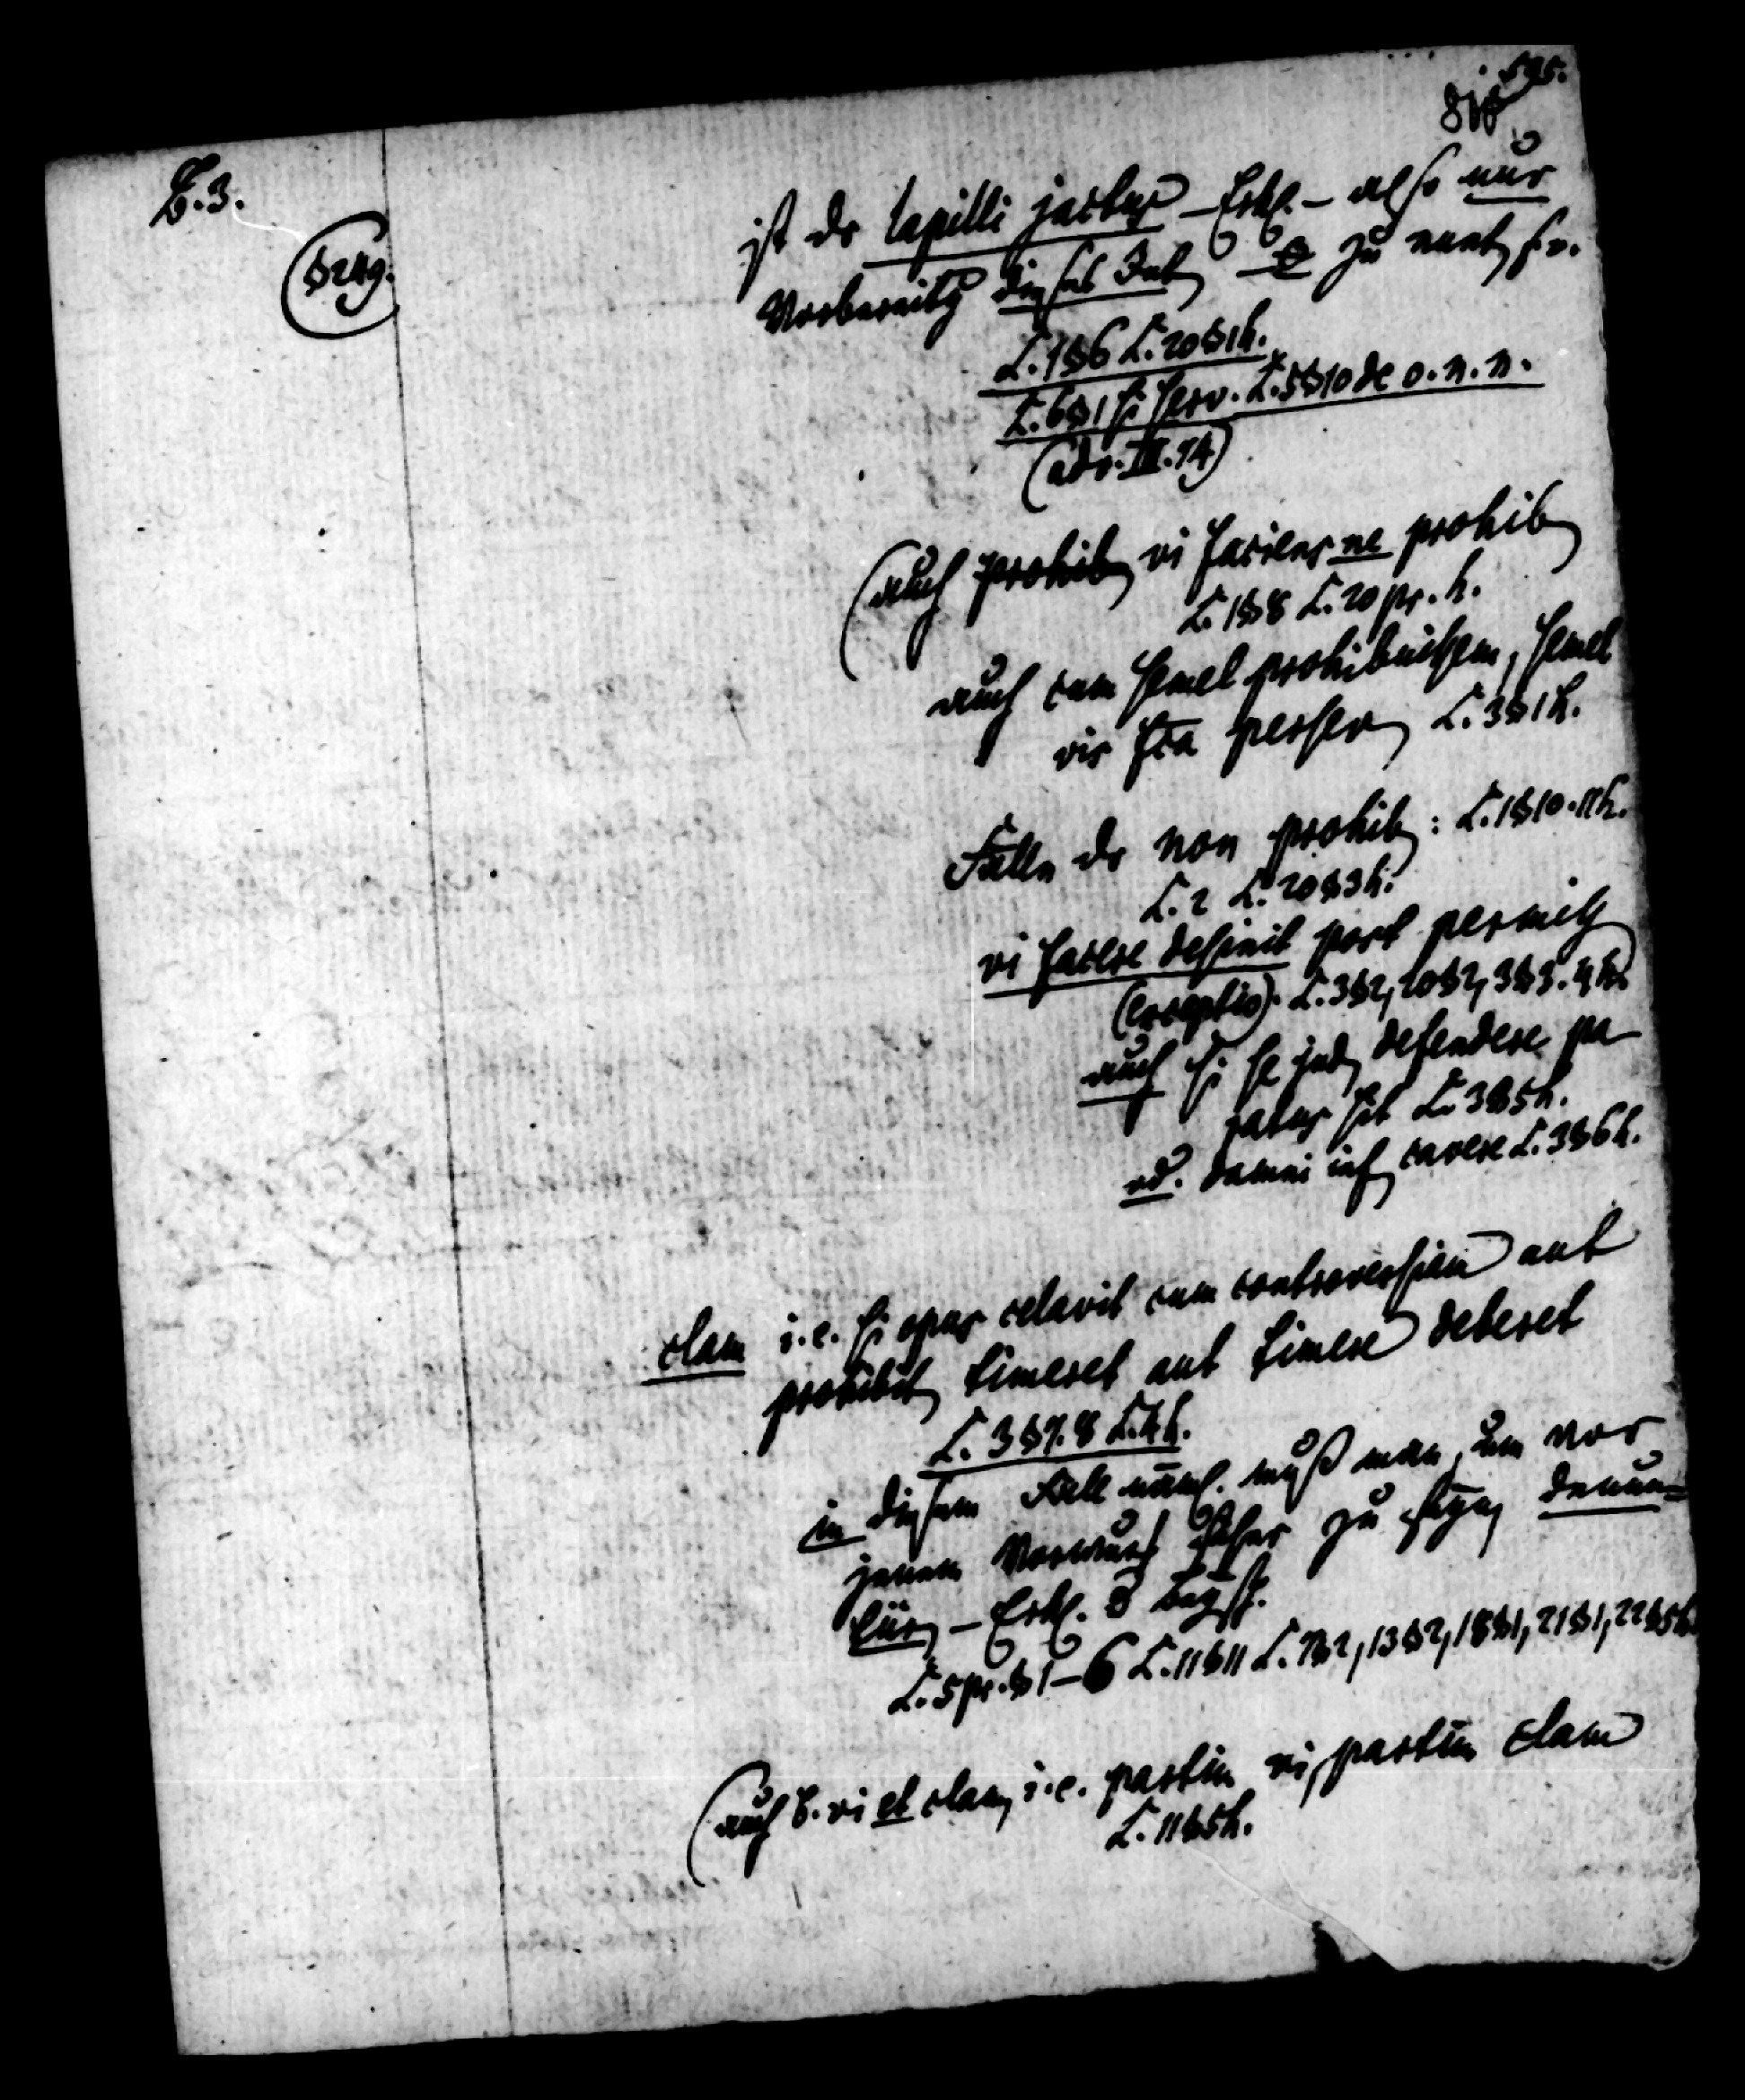 595.
B. 3.
§ 249.
ist der lapilli jactus – Erkl. – also nur
Vorbereitg dieses Int zu
L. 1 § 6 L. 20 § 1 h.
L. 6 § 1 si serv. L. 5 § 10 de o. n. n.
(adv. III. 14)
(auch prohib vi faciens ne prohib
L. 1 § 8 L. 20 pr. h.
auch cum semel prohibuissem, semel
vis fca persev L. 3 § 1 h.
Fälle der non prohib: L. 1 § 10. 11 h.
L. 2 L. 20 § 3 h.
vi facere desinit post permiss
(exceptio). L. 3 § 2, 20 § 2, 3 § 3. 4 h.
auch si se jud defendere pa-
ratus sit L. 3 § 5 h.
od. damni inf cavere L. 3 § 6 h.
clam i. e. si opus celavit cum controversiam aut
prohibit timeret aut timere deberet
L. 3 § 7. 8 L. 4 h.
in diesem Fall näml. muß man, um vor
jenem Vorwurf sicher zu seyn denun-
tiir – Erkl. d Begriffs.
L. 5 pr. § 1 – 6 L. 11 § 11 L. 7 § 2, 13 § 2, 18 § 1, 21 § 1, 22 § 5 h.
(auch b. vi et clam, i. e. partim vi, partim clam
L. 11 § 5 h.